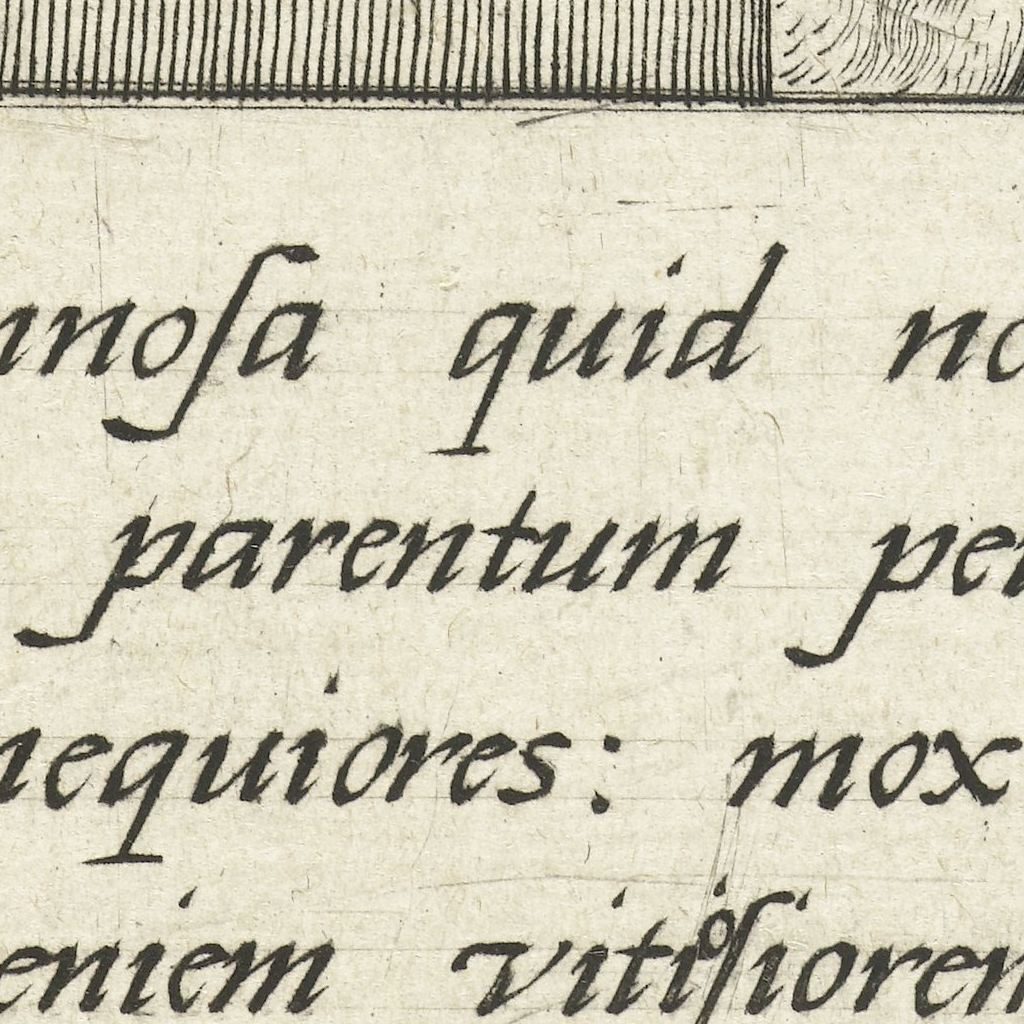 nnoſa quid no
parentum pe
nequiores: mox
eniem vitioſiorem